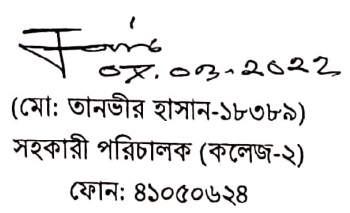 ০৮.০৩.২০২২
(মো: তানভীর হাসান-১৮৩৮৯)
সহকারী পরিচালক (কলেজ-২)
ফোন: ৪১০৫০৬২৪